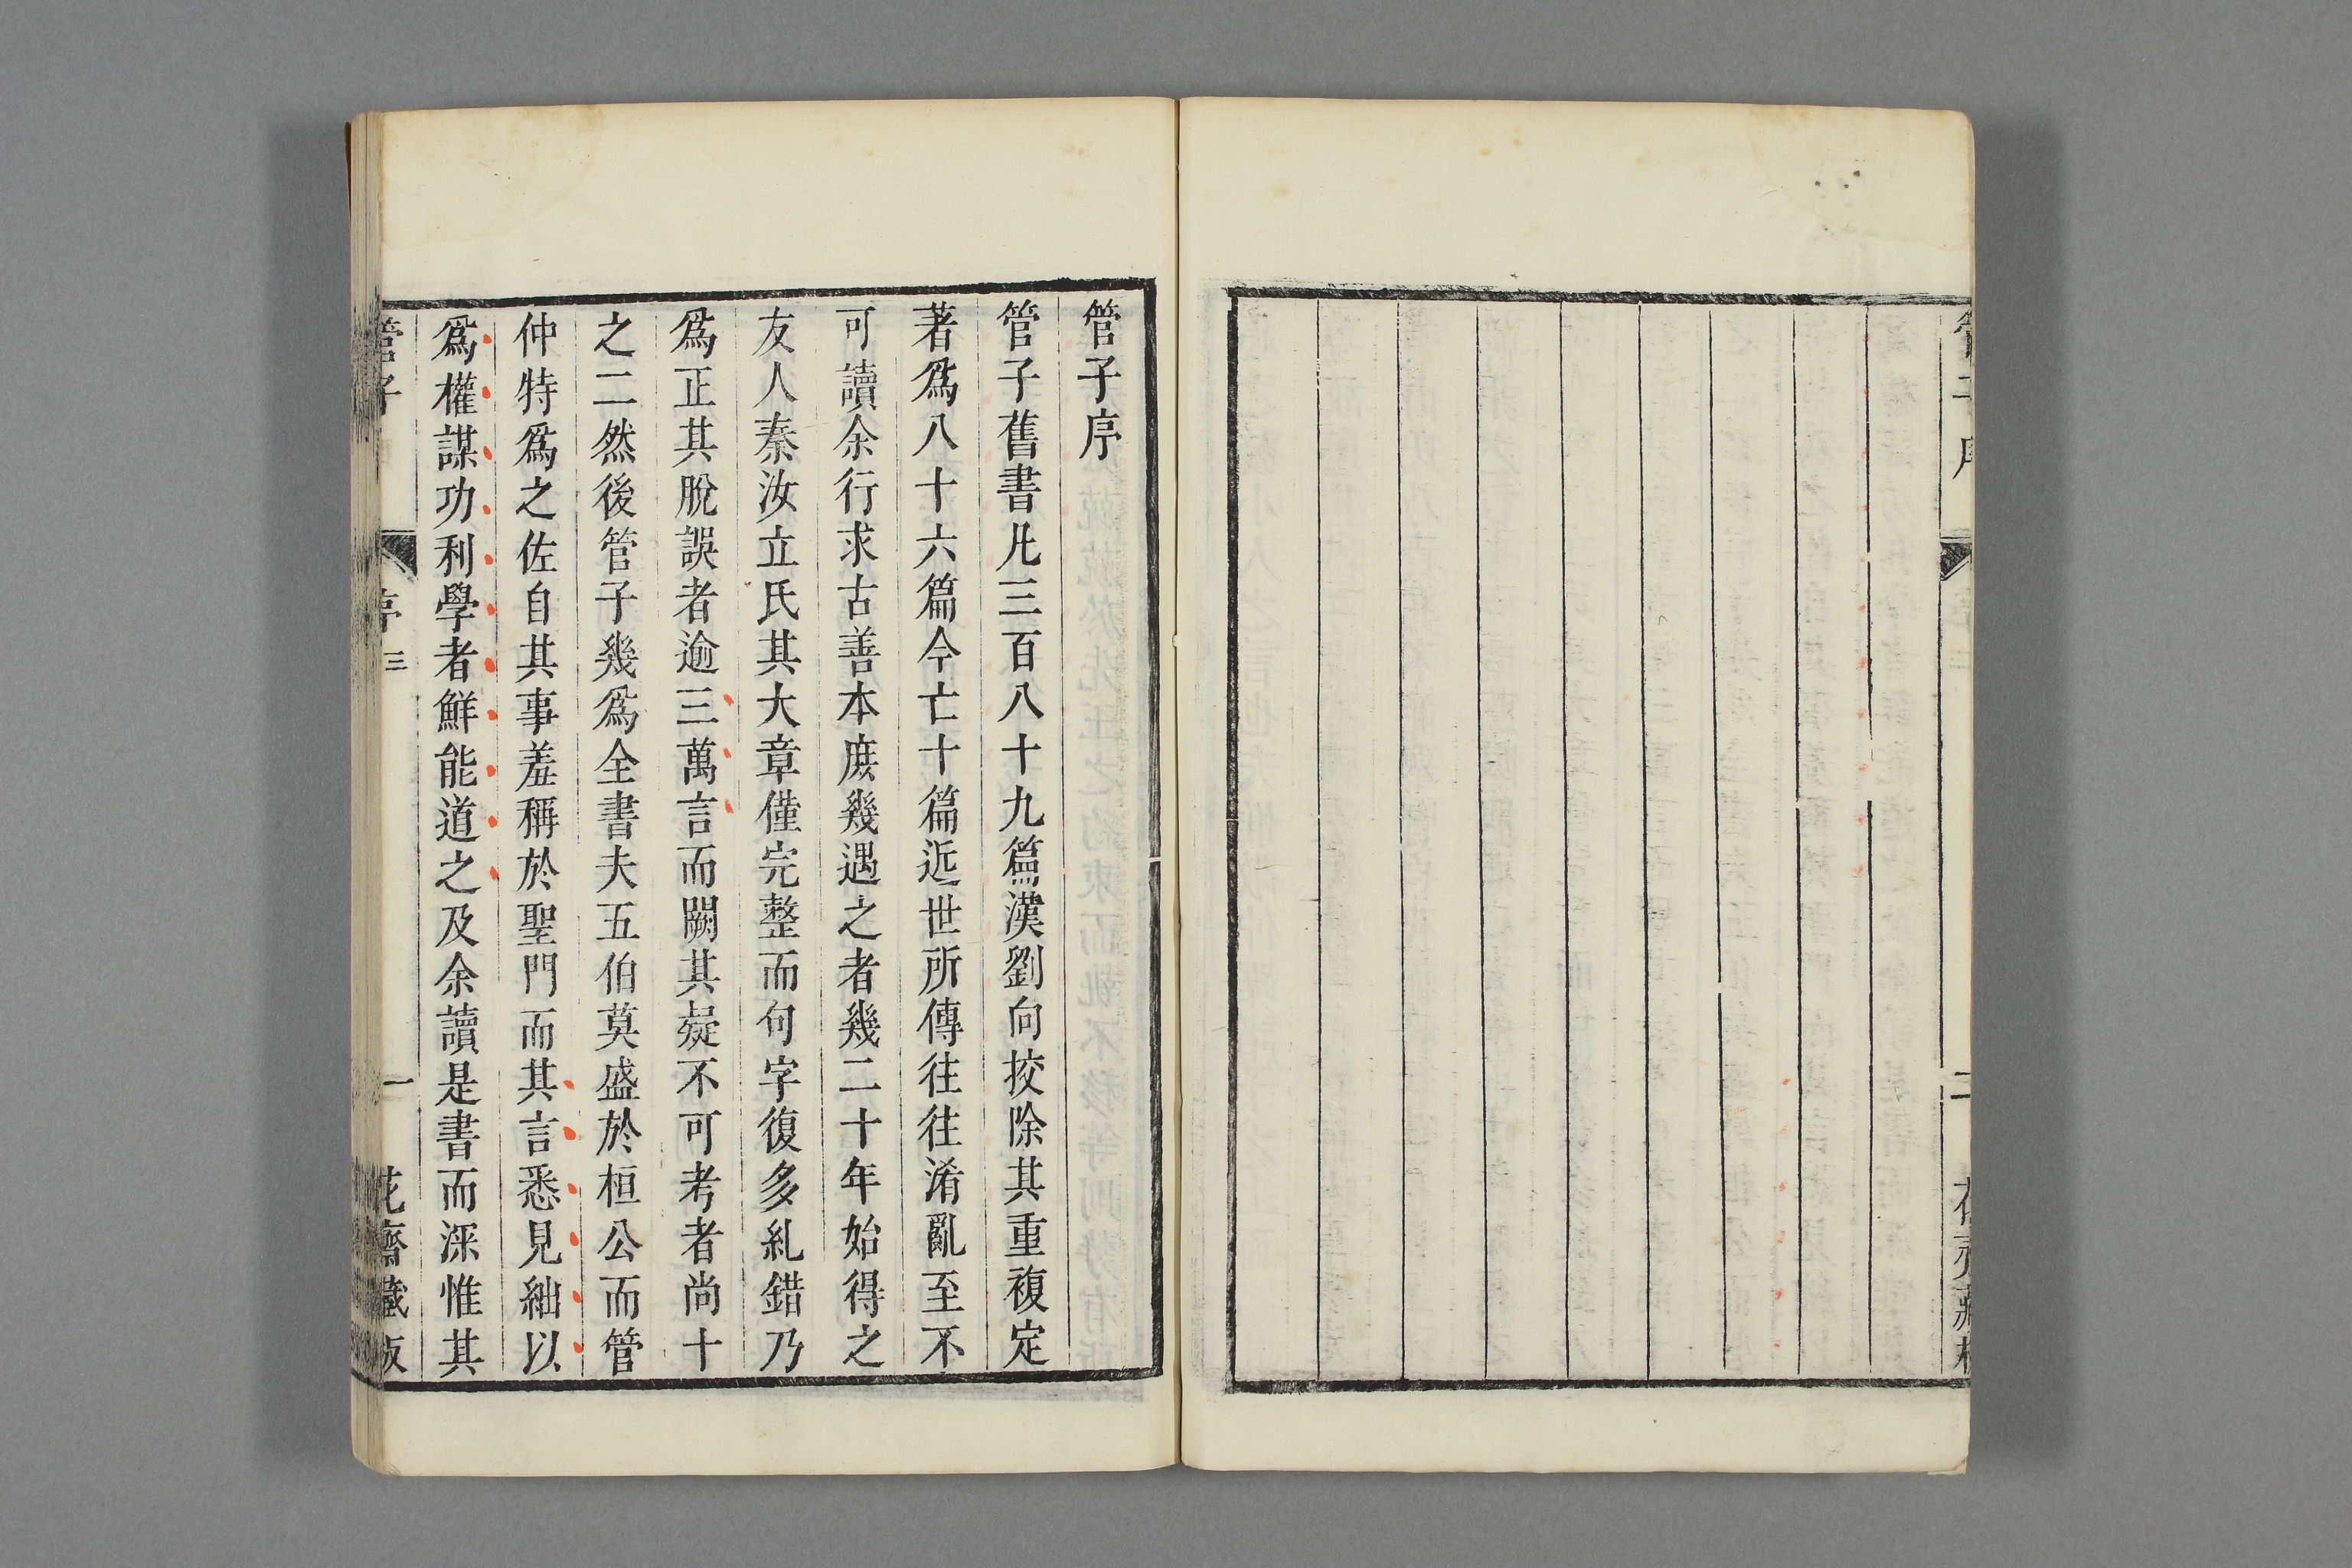 管子序
管子舊書凡三百八十九篇漢劉向挍除其重複定
著爲八十六篇今亡十篇近世所傳往往淆亂至不
可讀余行求古善本庶幾遇之者幾二十年始得之
友人秦汝立氏其大章僅完整而句字復多糺錯乃
爲正其脫誤者逾三萬言而闕其疑不可考者尚十
之二然後管子幾爲全書夫五伯莫盛於桓公而管
仲特爲之佐自其事羞稱於聖門而其言悉見絀以
爲權謀功利學者鮮能道之及余讀是書而深惟其
管子
序三
一
花齋藏板